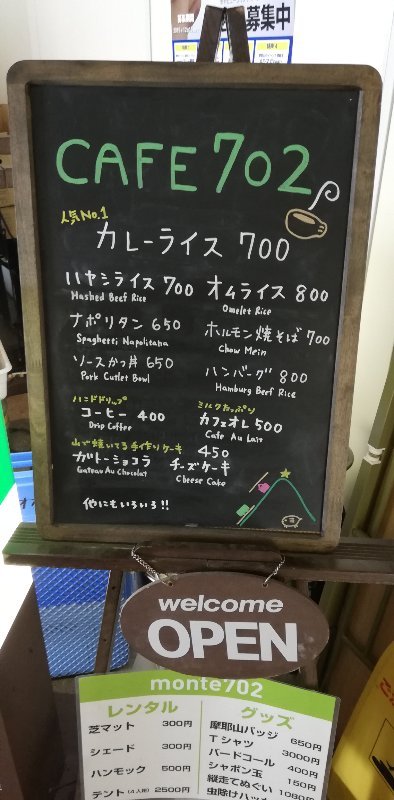 募集中
CAFE 702
人気No.1
カレーライス 700
ハヤシライス 700
Hashed Beef Rice
オムライス 800
Omelet Rice
ナポリタン 650
Spaghetti Napolitana
ホルモン焼そば 700
Chow Mein
ソースかつ丼 650
Pork Cutlet Bowl
ハンバーグ 800
Hamburg Beef Rice
ハンドドリップ
コーヒー 400
Drip Coffee
ミルクたっぷり
カフェオレ 500
Cafe Au Lait
山で焼いてる手作りケーキ 450
ガトーショコラ
Gateau Au Chocolat
チーズケーキ
Cheese Cake
他にもいろいろ!!
welcome
OPEN
monte702
レンタル
芝マット 300円
シェード 300円
ハンモック 500円
テント(4人用) 2500円
グッズ
摩耶山バッジ 650円
Tシャツ 3000円
バードコール 400円
シャボン玉 150円
縦走てぬぐい 1080円
虫除けハッカ